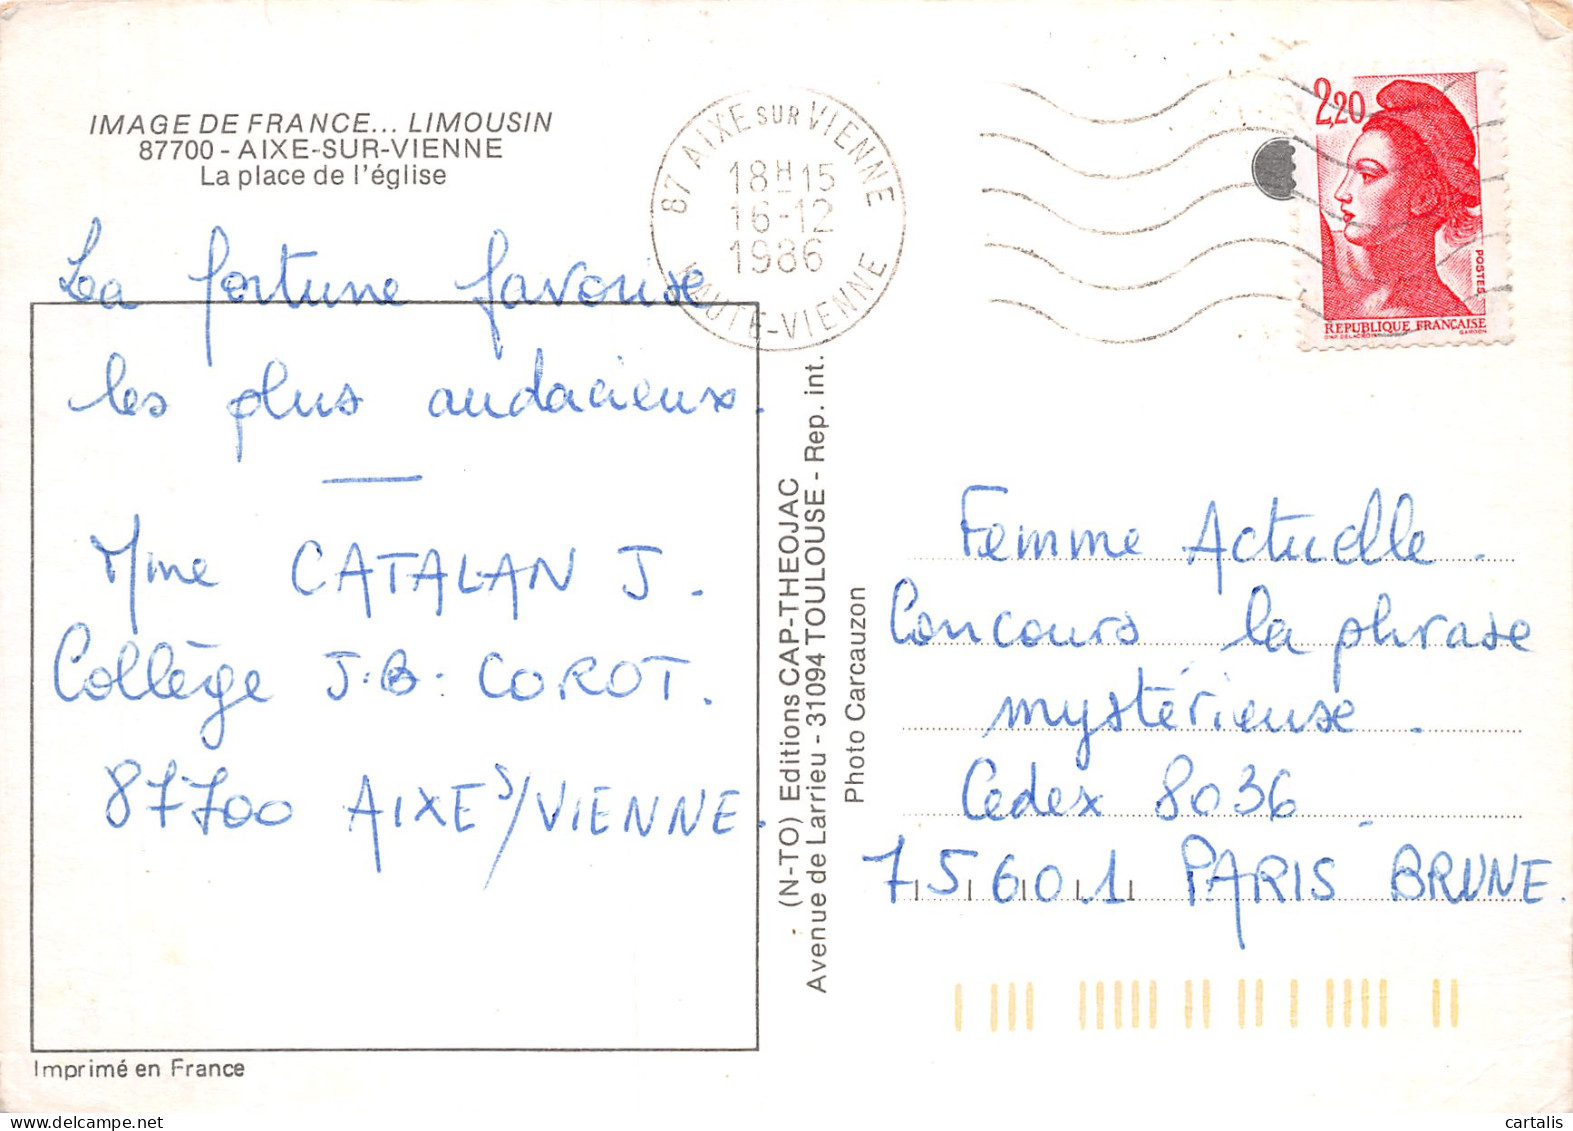 IMAGE DE FRANCE... LIMOUSIN
87700 - AIXE-SUR-VIENNE
La place de l'église
87 AIXE SUR VIENNE
18H15
16-12
1986
HAUTE-VIENNE
2,20
POSTES
REPUBLIQUE FRANÇAISE
La fortune favorise
les plus audacieux.
Mme CATALAN J.
Collège J.B. COROT.
87700 AIXE S/VIENNE.
(N-TO) Editions CAP-THEOJAC
Avenue de Larrieu - 31094 TOULOUSE - Rep. int.
Photo Carcauzon
Femme Actuelle.
Concours la phrase
mystérieuse.
Cedex 8036
75601 PARIS BRUNE.
Imprimé en France
cartalis